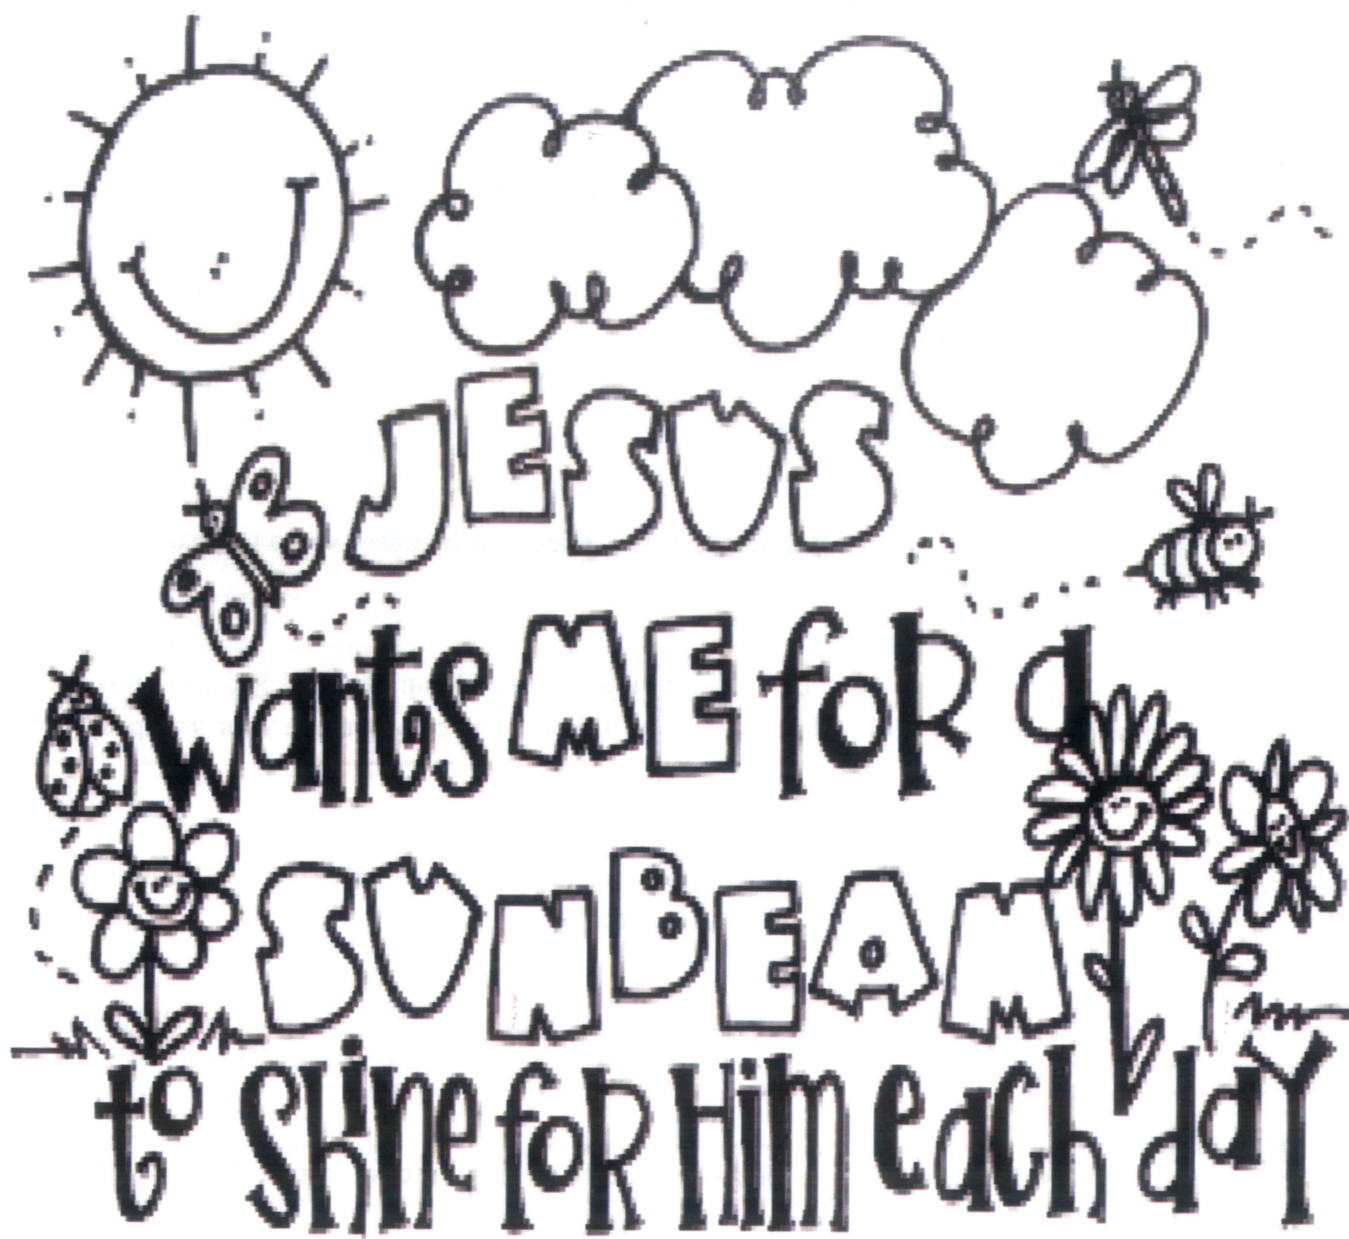 JESUS
wants ME foR a
SUNBEAM
to Shine foR Him each daY